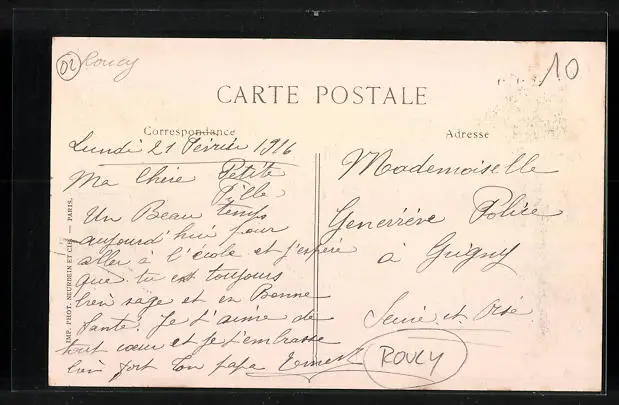 02 Roucy
10
CARTE POSTALE
Correspondance
Adresse
Lundi 21 Février 1916
Ma Chère Petite
Fille
Un Beau temps
aujourd'hui pour
aller à l'école et j'espère
que tu est toujours
bien sage et en Bonne
Santé. Je t'aime de
tout cœur et je t'embrasse
bien fort Ton papa Ernest
Mademoiselle
Geneviève Police
à Grigny
Seine et Oise
ROUCY
IMP. PHOT. NEURDEIN ET CIE. — PARIS.